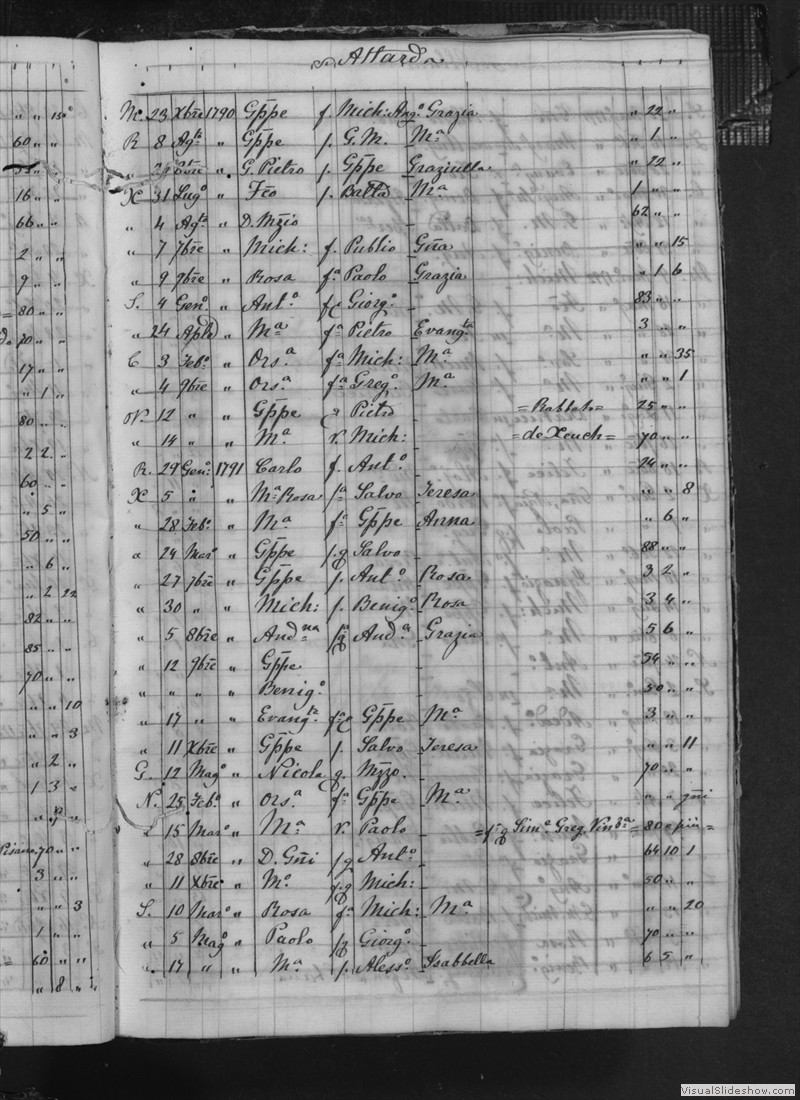 Attard
Mc. 23 Xbre 1790 Gppe f. Mich: Ang.o Grazia " 22 "
R 8 Ag.to " Gppe f. G. M. M.a " 1 "
" " G. Pietro f. Gppe Graziulla " 22 "
X 31 Lug.o " Fco f. Batta M.a 1 " "
" 4 Ag.to " D. Mzio 62 " "
" 7 7bre " Mich: f. Publio Gña " " 15
" 9 9bre " Rosa f.a Paolo Grazia " 1 6
S. 4 Gen.o " Ant.o Giorg.o 83 " "
" 24 Aple " M.a f.a Pietro Evang.ta 3 " "
C 3 Feb.o " Ors.a f.a Mich: M.a " " 35
" 4 9bre " Ors.a f.a Greg.o M.a " " 1
N. 12 " " Gppe Pietro =Rabbato= 25 " "
" 14 " " M.a v. Mich: =de Xeuch= 70 " "
R. 29 Gen.o 1791 Carlo f. Ant.o 24 " "
X 5 " " M.a Rosa f.a Salvo Teresa " " 8
" 28 Feb.o " M.a f.a Gppe Anna " 6 "
" 24 Mar.o " Gppe f.g Salvo 88 " "
" 27 7bre " Gppe f. Ant.o Rosa 3 2 "
" 30 " " Mich: f. Benig.o Rosa 3 4 "
" 5 8bre " And.na And.a Grazia 5 6 "
" 12 9bre " Gppe 54 " "
" " " " Benig.o 50 " "
" 17 " " Evang.ta Gppe M.a 3 " "
" 11 Xbre " Gppe f. Salvo Teresa " " 11
G. 12 Mag.o " Nicola g. Mzzo. 70 " "
N. 25 Feb.o " Ors.a f.a Gppe M.a " " gni
15 Mar.o " M.a v. Paolo Sim.o Greg. = 80 = più =
" 28 8bre " D. Gñi f g Ant.o 64 10 1
" 11 Xbre " M.o f.g Mich: 50 " "
S. 10 Mar.o " Rosa f.a Mich: M.a " " 20
" 5 Mag.o " Paolo f g Giorg.o 70 " "
" 17 " " M.a f. Aless.o Isabbella 6 5 "
VisualSlideshow.com